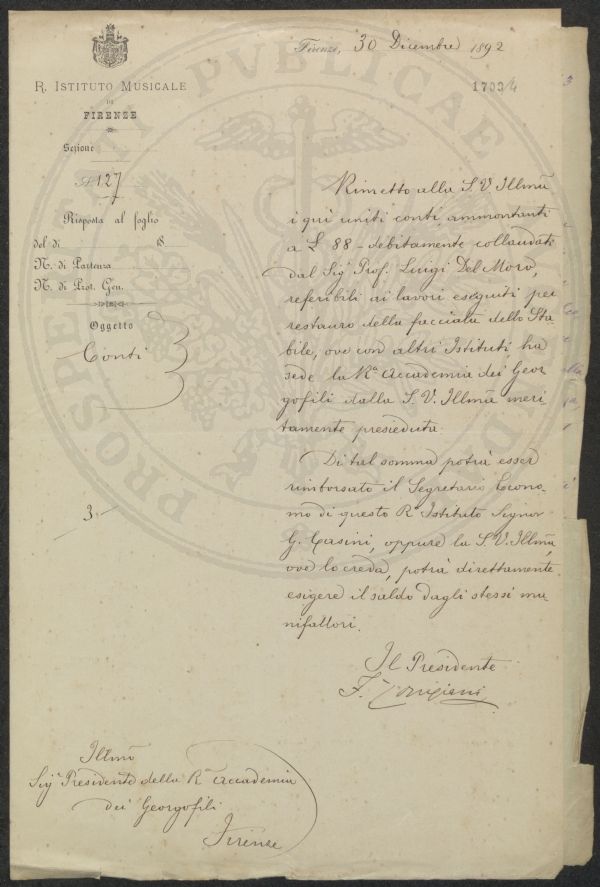 Firenze, 30 Dicembre 1892
R. ISTITUTO MUSICALE
DI
FIRENZE
1703/4
Sezione
N. 127
Risposta al foglio
del dì 18
N. di Partenza
N. di Prot. Gen.
Oggetto
Conti
3
Rimetto alla S. V. Illma
i quì uniti conti ammontanti
a £ 88 - debitamente collaudati
dal Sigr Prof. Luigi Del Moro,
referibili ai lavori eseguiti per
restauro della facciata dello Sta-
bile, ove con altri Istituti, ha
sede la Ra Accademia dei Geor-
gofili dalla S. V. Illma meri-
tamente presieduta.
Di tal somma potrà esser
rimborsato il Segretario Econo-
mo di questo R. Istituto Signor
G. Casini, oppure la S. V. Illma,
ove lo creda, potrà direttamente
esigere il saldo dagli stessi ma-
nifattori.
Il Presidente
F. Torrigiani
Illmo
Sigr Presidente della Ra Accademia
dei Georgofili
Firenze
PROSPERITATI PUBLICAE